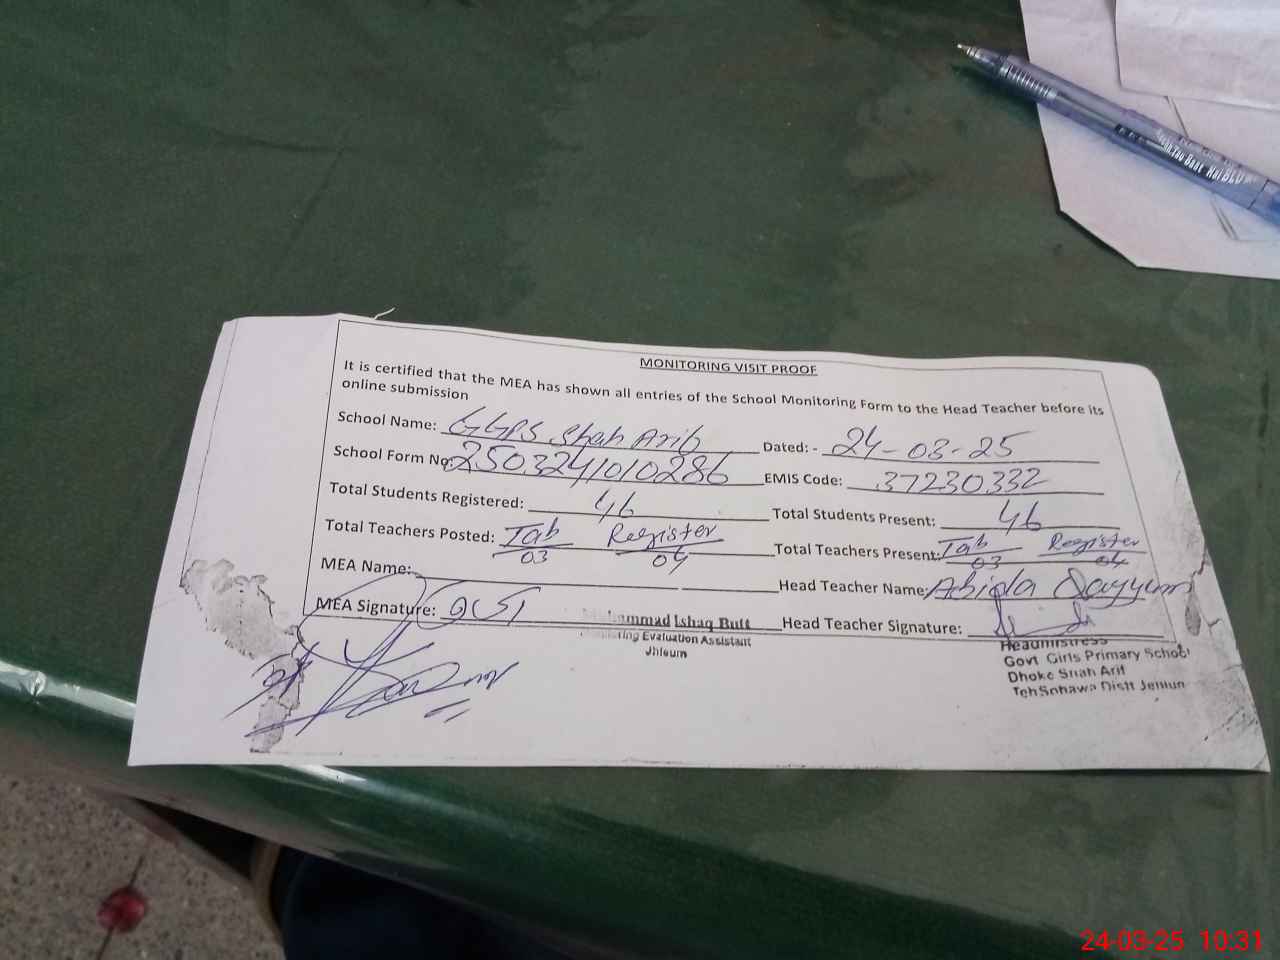 MONITORING VISIT PROOF
It is certified that the MEA has shown all entries of the School Monitoring Form to the Head Teacher before its
online submission
School Name: GGPS Shah Arif Dated: - 24-03-25
School Form No: 250324101010286 EMIS Code: 37230332
Total Students Registered: 46 Total Students Present: 46
Total Teachers Posted: Tab 03 Register 04 Total Teachers Present: Tab 03 Register 04
MEA Name: Head Teacher Name: Abida Qayyum
MEA Signature: Head Teacher Signature:
Muhammad Ishaq Butt
Monitoring Evaluation Assistant
Jhleum
Headmistress
Govt Girls Primary School
Dhoke Shah Arif
Teh Sohawa Distt Jehlum
24-03-25 10:31